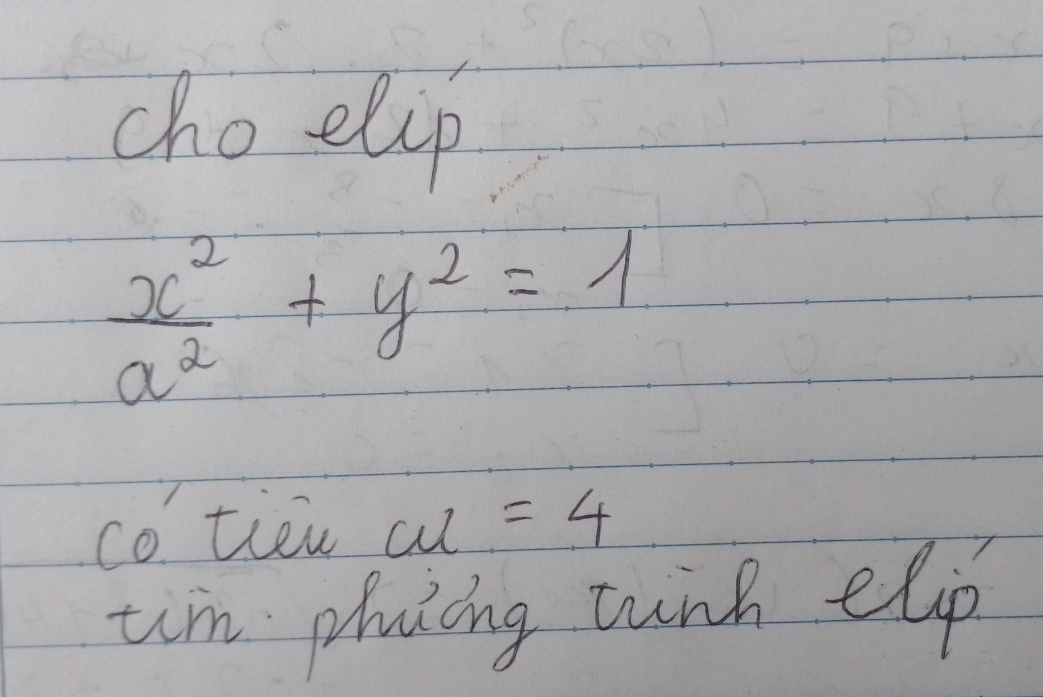 cho elíp
x²/a² + y² = 1
có tiêu cự = 4
tìm phương trình elíp